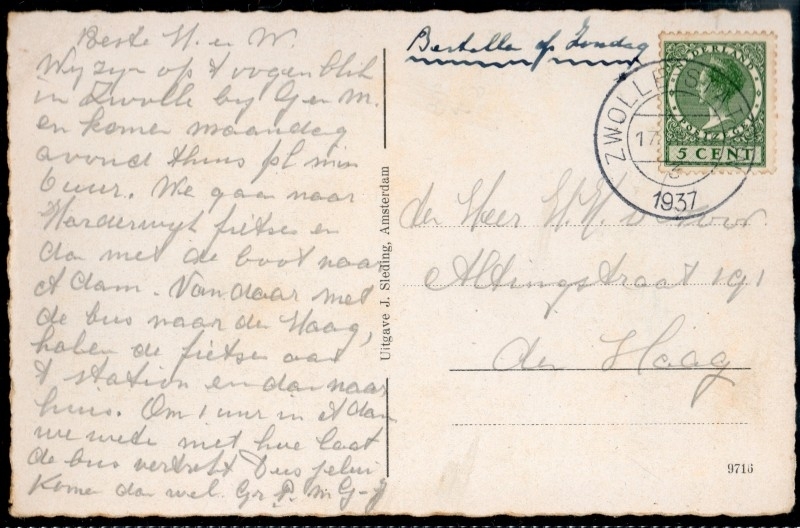 Beste H. en W.
Wij zijn op 't oogenblik
in Zwolle bij G en M.
en komen maandag
avond thuis pl min
6 uur. We gaan naar
Harderwijk fietsen en
dan met de boot naar
A dam. Van daar met
de bus naar den Haag,
halen de fietsen aan
't station en dan naar
huis. Om 1 uur in A dam
we weten niet hoe laat
de bus vertrekt Dus
komen dan wel. Gr P. m G-J
Uitgave J. Sleding, Amsterdam
Bestellen op Zondag
NEDERLAND
POSTZEGEL
5 CENT
ZWOLLE
17
1937
den Heer H.
Altingstraat 191
den Haag
9716